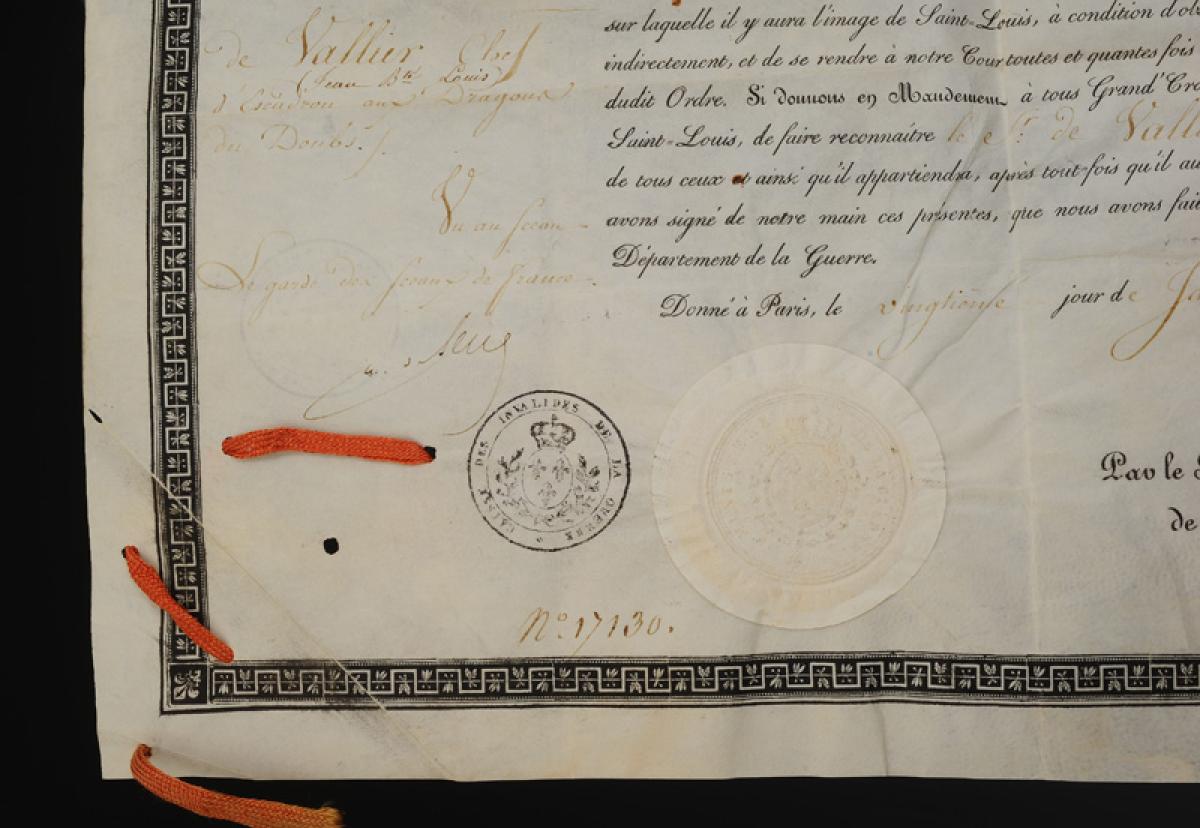 de Vallier Chef
(Jean Bte Louis)
d'Escadron aux Dragons
du Doubs.
Vu au sceau
Le garde des sceaux de France
sur laquelle il y aura l'image de Saint-Louis, à condition d'obs
indirectement, et de se rendre à notre Cour toutes et quantes fois
dudit Ordre. Si donnons en Mandement à tous Grand'Cro
Saint-Louis, de faire reconnaître le Sr. de Valli
de tous ceux et ainsi qu'il appartiendra, après tout-fois qu'il au
avons signé de notre main ces présentes, que nous avons fait
Département de la Guerre.
Donné à Paris, le vingtième jour de Ja
CAISSE DES INVALIDES DE LA GUERRE
Par le
de
No. 17130.